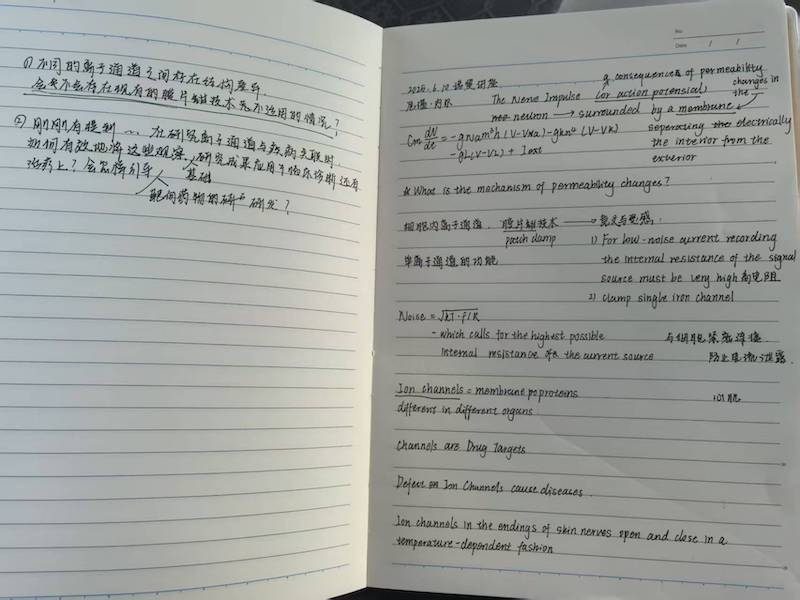 ① 不同的离子通道之间存在结构差异.
会不会存在现有的膜片钳技术无法适用的情况?
② 刚刚有提到 … 在研究离子通道与疾病关联时.
如何有效地将这些观察、研究成果应用于临床诊断还有
治疗上? 会怎样引导
基础
靶向药物的研 研发?
No.
Date / /
2025.6.10
The Nerve Impulse (or action potensial)
a consequences of permeability
changes in
the
neuron → surrounded by a membrane
Cm dV/dt = -gNam³h(V-VNa)-gkn⁴(V-Vk)
-gL(V-VL) + Iext
seperating the electrically
the interior from the
exterior
* What is the mechanism of permeability changes?
细胞内离子通道. 膜片钳技术 →
patch clamp
1) For low-noise current recording
单离子通道的功能
the internal resistance of the signal
source must be very high 高电阻
2) clamp single iron channel
Noise = √kT·f/R
- which calls for the highest possible
internal resistance of the current source
与细胞紧密连接.
防止电流泄露.
Ion channels = membrane poproteins
different in different organs
心肌
Channels are Drug Targets
Defect on Ion Channels cause diseases.
Ion channels in the endings of skin nerves open and close in a
temperature-dependent fashion